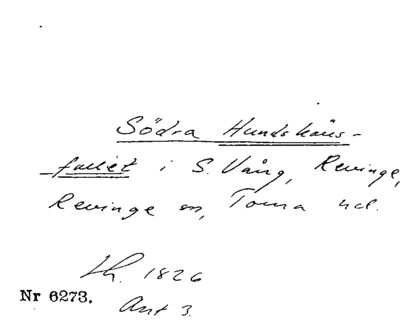 Södra Hundskäns-
fallet i S. Vång, Revinge,
Revinge sn, Torna hd.
Lh. 1826
Nr 6273.
Akt 3.